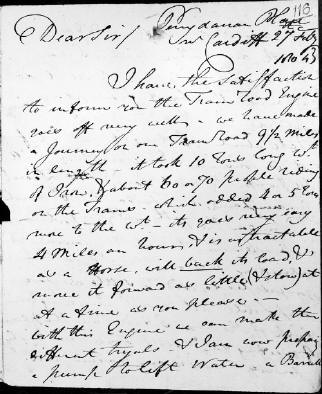 116
Penydarran Place
Dear Sir/ Nr Cardiff 27 Feb
I have the satisfaction
to inform you the Tram Road Engine
goes off very well - we have made
a Journey on our Tram Road 9 1/2 miles
in length - it took 10 Tons long Wt
of Iron, & about 60 or 70 people riding
on the Trams - which added 4 or 5 Tons
more to the Wt - its goes very easy
4 Miles an hour, & is as tractable
as a Horse, will back its load, &
move it forward as little (& slow) at
at a time as you please. -
With this Engine we can make
different tryals & I am now preparing
a pump to lift Water a Barrel